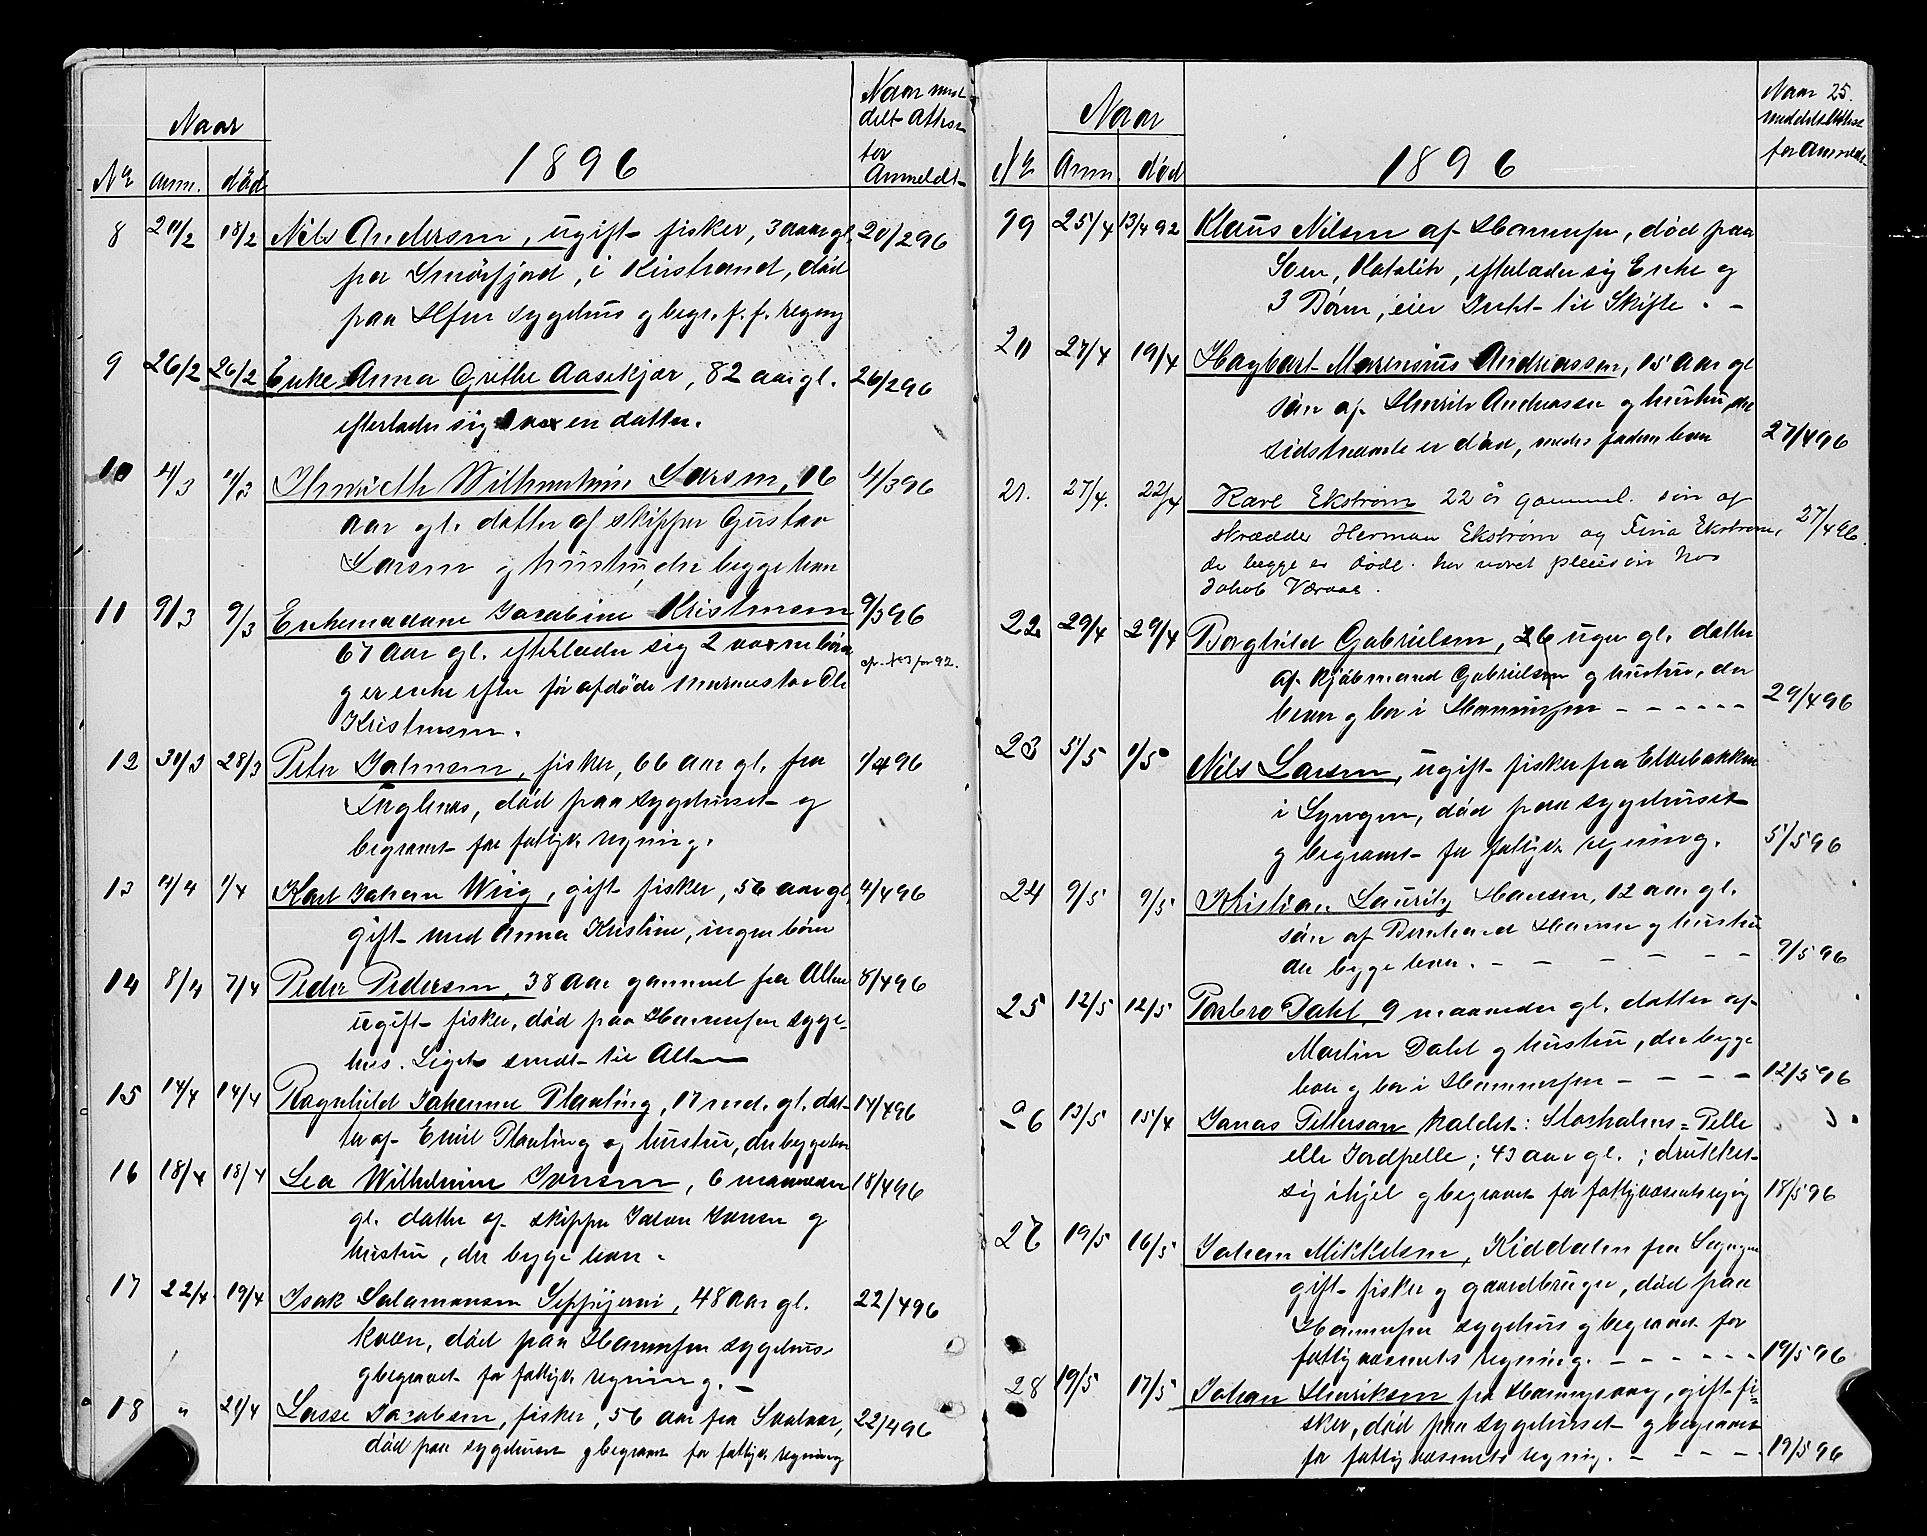 Naar
Naar med
delt Attest
for
Anmeldt
1896
No anm. død
8 20/2 18/2 Nils Andersen, ugift fisker, 30 aar gl. 20/2 96
fra Smörfjord, i Kistrand, død
paa Hfest sygehus og begr. f. f. regning
9 26/2 26/2 Enke Anna Grethe Aasekjær, 82 aar gl. 26/2 96
efterlader sig en datter.
10 4/3 4/3 Wilhelmine Larsen, 16 4/3 96
aar gl. datter af skipper Gustav
Larsen og hustru, der begge lever
11 9/3 9/3 Enkemadame Jacobine Kristensen 9/3 96
67 aar gl. efterlader sig 2 voxne börn
og er enke efter før afdöde murmester Ole
Kristensen.
12 30/3 28/3 Peter Salmonsen, fisker, 66 aar gl. fra 1/4 96
død paa sygehuset og
begravet for fattigv. regning.
13 4/4 1/4 Karl Johan Wiig, gift fisker, 56 aar gl. 4/4 96
gift med Anna Kristine, ingen börn
14 8/4 7/4 Peder Pedersen, 38 aar gammel fra Alten 8/4 96
ugift fisker, død paa Hammerfest syge-
hus. Liget sendt til Alten
15 14/4 14/4 Ragnhild Johanne Planting, 17 md. gl. dat- 14/4 96
ter af Emil Planting og hustru, der begge lever
16 18/4 18/4 Lea Wilhelmine Iversen, 6 maaneder 18/4 96
gl. datter af skipper Iversen og
hustru, der begge lever.
17 22/4 19/4 Isak Salamonsen Seppijervi, 48 aar gl. 22/4 96
kvæn, død paa Hammerfest sygehus
og begravet for fattigv. regning. –
18 " 21/4 Lasse Jacobsen, fisker, 56 aar fra 22/4 96
død paa sygehuset og begravet for fattigv. regning
Naar
Naar 25.
meddelt Attest
for Anmeldt
1896
No Anm. død
19 25/4 13/4 92 Klaus Nilsen af Hammerfest, død paa
Søen, efterlader sig Enke og
3 Börn, eier Intet til Skifte. –
20 27/4 19/4 Hagbart Marensius Andreassen, 15 aar gl
sön af Henrik Andreassen og hustru, der
sidstnævnte er död, medens faderen lever 27/4 96
21. 27/4. 22/4 Karl Ekstrøm 22 år gammel. søn af
skrædder Herman Ekstrøm og Fina Ekstrøm, 27/4 96.
de begge er døde. har været pleiesøn hos
Jakob Væraas.
22 29/4 29/4 Borghild Gabrielsen, 6 uger gl. datter
af kjöbmand Gabrielsen og hustru, der
lever og bor i Hammerfest – – – – – – 29/4 96
23 5/5 1/5 Nils Larsen, ugift fisker fra Elvebakken
i Lyngen, død paa sygehuset
og begravet for fattigv. regning. 5/5 96
24 9/5 9/5 Kristian Lauritz Hansen, 12 aar gl.
sön af Bernhard Hansen og hustru
der begge lever. – – – – – – 9/5 96
25 12/5 12/5 Torbro Dahl, 9 maaneder gl. datter af
Martin Dahl og hustru, der begge
lever og bor i Hammerfest – – – – 12/5 96
26 13/5 15/4 Jonas Pettersen kaldet: Stockholms-Pelle
eller Jordpelle; 43 aar gl.; drukket
sig ihjel og begravet for fattigvæsenets regning 18/5 96
27 19/5 16/5 Johan Mikkelsen, Kiddalen fra Lyngen
gift fisker og gaardbruger, død paa
Hammerfest sygehus og begravet for
fattigvæsenets regning. – – – – – – 19/5 96
28 19/5 17/5 Johan Henriksen fra Honningsvaag, gift fi-
sker, død paa sygehuset og begravet
for fattigvæsenets regning. – – – – 19/5 96